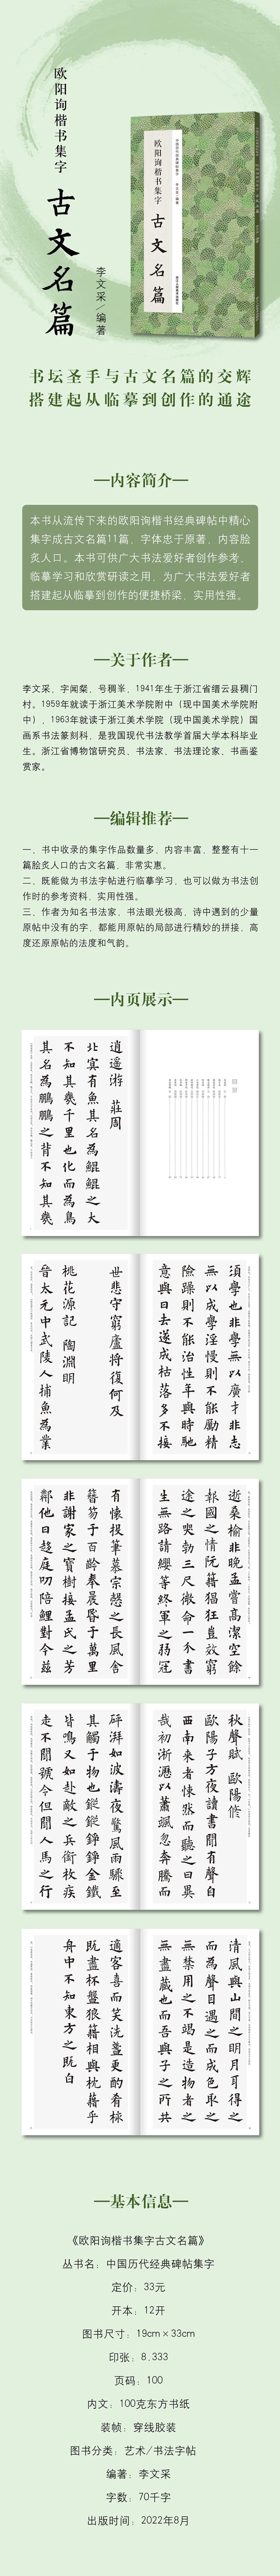 欧阳询楷书集字
古文名篇
李文采/编著
欧阳询楷书集字
古文名篇
书坛圣手与古文名篇的交辉
搭建起从临摹到创作的通途
内容简介
本书从流传下来的欧阳询楷书经典碑帖中精心
集字成古文名篇11篇，字体忠于原著，内容脍
炙人口。本书可供广大书法爱好者创作参考、
临摹学习和欣赏研读之用，为广大书法爱好者
搭建起从临摹到创作的便捷桥梁，实用性强。
关于作者
李文采，字闻粲，号稠峯，1941年生于浙江省缙云县稠门
村。1959年就读于浙江美术学院附中（现中国美术学院附
中），1963年就读于浙江美术学院（现中国美术学院）国
画系书法篆刻科，是我国现代书法教学首届大学本科毕业
生。浙江省博物馆研究员，书法家、书法理论家、书画鉴
赏家。
编辑推荐
一、书中收录的集字作品数量多，内容丰富，整整有十一
篇脍炙人口的古文名篇，非常实惠。
二、既能做为书法字帖进行临摹学习，也可以做为书法创
作时的参考资料，实用性强。
三、作者为知名书法家，书法眼光极高，诗中遇到的少量
原帖中没有的字，都能用原帖的局部进行精妙的拼接，高
度还原原帖的法度和气韵。
内页展示
目录
逍遥游 莊周
北冥有魚其名為鯤鯤之大
不知其幾千里也化而為鳥
其名為鵬鵬之背不知其幾
須學也非學無以廣才非志
無以成學淫慢則不能勵精
險躁則不能治性年與時馳
意與日去遂成枯落多不接
世悲守窮廬將復何及
桃花源記 陶淵明
晉太元中武陵人捕魚為業
逝桑榆非晚孟嘗高潔空餘
報國之情阮籍猖狂豈效窮
途之哭勃三尺微命一介書
生無路請纓等終軍之弱冠
有懷投筆慕宗愨之長風舍
簪笏于百齡奉晨昏于萬里
非謝家之寶樹接孟氏之芳
鄰他日趨庭叨陪鯉對今茲
秋聲賦 歐陽脩
歐陽子方夜讀書聞有聲自
西南來者悚然而聽之曰異
哉初淅瀝以蕭颯忽奔騰而
砰湃如波濤夜驚風雨驟至
其觸于物也鏦鏦錚錚金鐵
皆鳴又如赴敵之兵銜枚疾
走不聞號令但聞人馬之行
清風與山間之明月耳得之
而為聲目遇之而成色取之
無禁用之不竭是造物者之
無盡藏也而吾與子之所共
適客喜而笑洗盞更酌肴核
既盡杯盤狼籍相與枕藉乎
舟中不知東方之既白
基本信息
《欧阳询楷书集字古文名篇》
丛书名：中国历代经典碑帖集字
定价：33元
开本：12开
图书尺寸：19cm×33cm
印张：8.333
页码：100
内文：100克东方书纸
装帧：穿线胶装
图书分类：艺术/书法字帖
编著：李文采
字数：70千字
出版时间：2022年8月